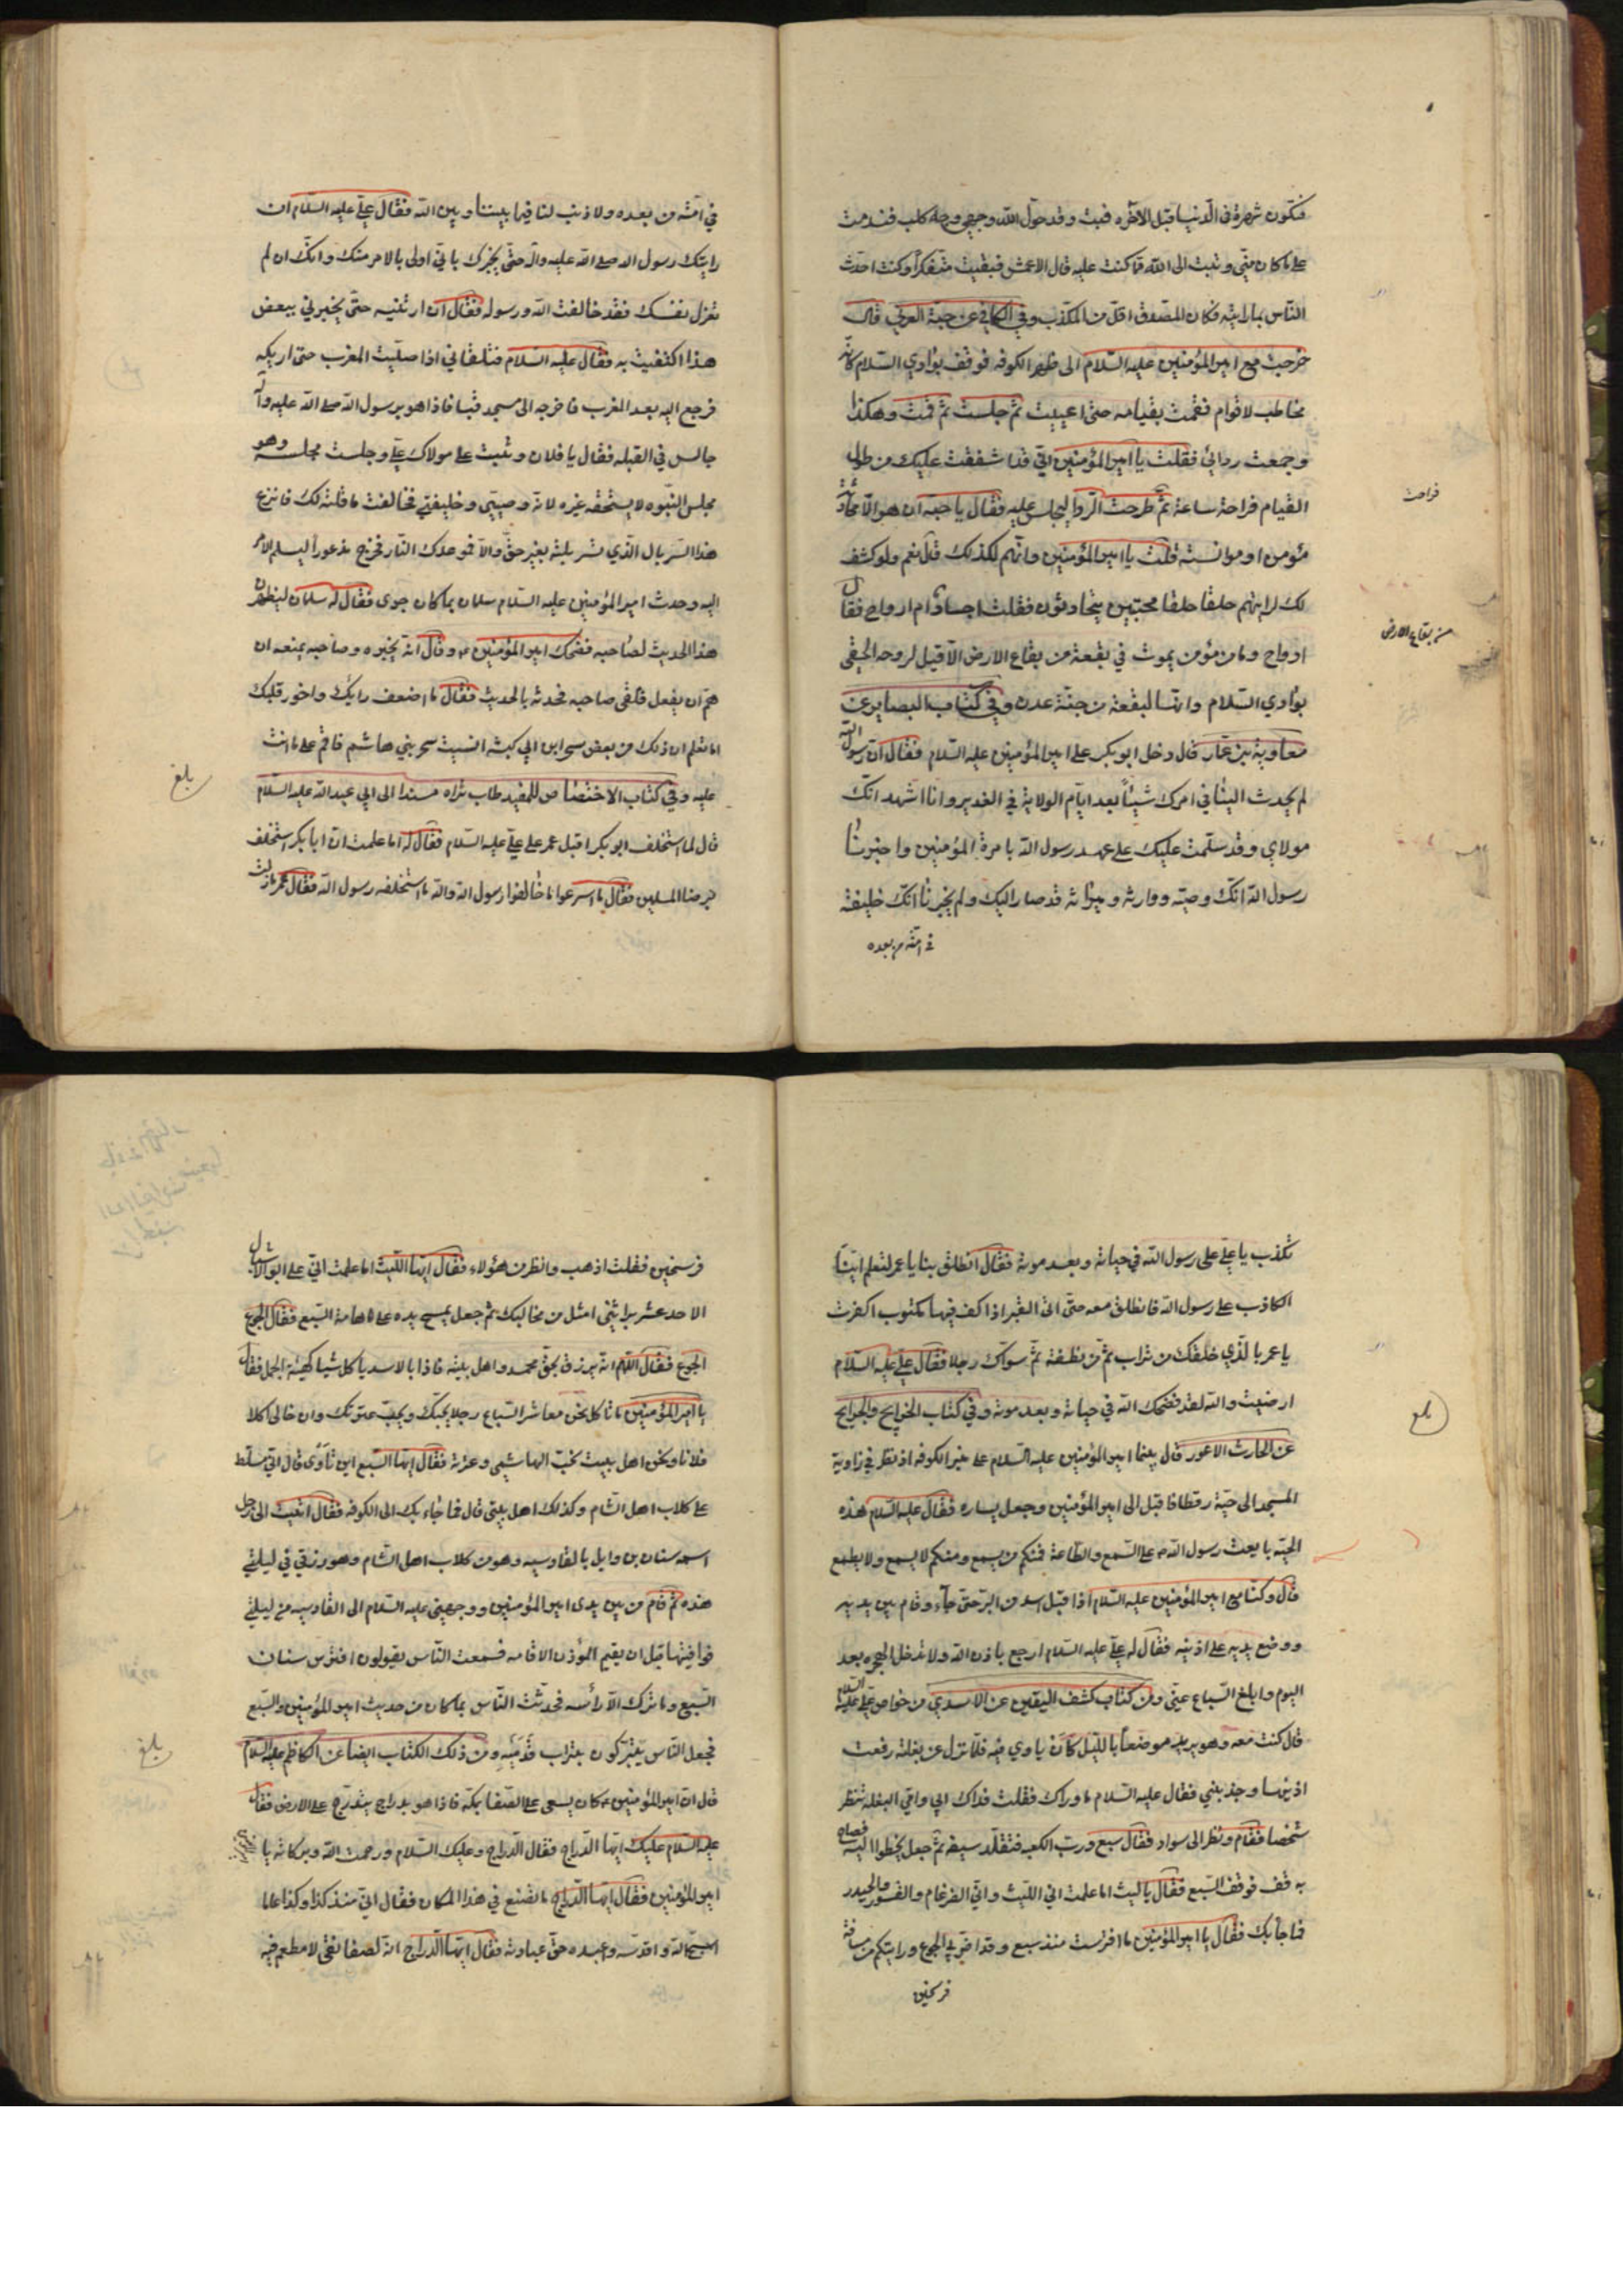 فتكون شهرة في الدنيا قبل الآخره فبت وقد حول الله وجهي وجه كلب فندمت
على ما كان مني وتبت الى الله مما كنت عليه قال الاعمش فبقيت متفكراً وكنت احدث
الناس بما رايته فكان المصدق اقل من المكذب وفي الكافي عن حبة العرني قال
خرجت مع امير المؤمنين عليه السلام الى ظهر الكوفه فوقف بوادي السلام كانه
مخاطب لاقوام فقمت بقيامه حتى اعييت ثم جلست ثم قمت وهكذا
وجمعت ردائي فقلت يا امير المؤمنين اني قد اشفقت عليك من طول
القيام فراحة ساعة ثم طرحت الردا ليجلس عليه فقال يا حبه ان هو الا محادثة
مؤمن او موانسته قلت يا امير المؤمنين وانهم لكذلك قال نعم ولو كشف
لك لرايتهم حلقا حلقا محتبين يتحادثون فقلت اجساد ام ارواح فقال
ارواح وما من مؤمن يموت في بقعة من بقاع الارض الا قيل لروحه الحقي
بوادي السلام وانها لبقعة من جنة عدن وفي كتاب البصاير عن
معاوية بن عمار قال دخل ابو بكر على امير المؤمنين عليه السلام فقال ان رسول الله
لم يحدث الينا في امرك شيئاً بعد ايام الولاية في الغدير وانا اشهد انك
مولاي وقد سلمت عليك على عهد رسول الله بامرة المؤمنين واخبرنا
رسول الله انك وصيه ووارثه وميراثه قد صار اليك ولم يخبرنا انك خليفته
في امته من بعده
فراحت
من بقاع الارض
في امته من بعده ولا ذنب لنا فيما بيننا وبين الله فقال علي عليه السلام ان
رايتك رسول الله صلى الله عليه واله حتى يخبرك باني اولى بالامر منك وانك ان لم
تعزل نفسك فقد خالفت الله ورسوله فقال ان ارتنيه حتى يخبرني ببعض
هذا اكتفيت به فقال عليه السلام فتلقاني اذا صليت المغرب حتى اريكه
فرجع اليه بعد المغرب فاخرجه الى مسجد قبا فاذا هو برسول الله صلى الله عليه واله
جالس في القبله فقال يا فلان وثبت على مولاك علي وجلست مجلسه وهو
مجلس النبوه لا يستحقه غيره لانه وصيي وخليفتي فخالفت ما قلته لك فانزع
هذا السربال الذي تسربلته بغير حق والا فموعدك النار فخرج مذعوراً ليسلم الامر
اليه وحدث امير المؤمنين عليه السلام سلمان بما كان جرى فقال له سلمان ليظهرن
هذا الحديث لصاحبه فضحك امير المؤمنين ع وقال انه يخبره وصاحبه يمنعه ان
هم ان يفعل فلقى صاحبه فحدثه بالحديث فقال ما اضعف رايك واخور قلبك
اما تعلم ان ذلك من بعض سحر ابن ابي كبشه انسيت سحر بني هاشم فاقم على ما انت
عليه وفي كتاب الاختصاص للمفيد طاب ثراه مسندا الى ابي عبد الله عليه السلام
قال لما استخلف ابو بكر اقبل عمر على علي عليه السلام فقال له اما علمت ان ابا بكر استخلف
برضا المسلمين فقال ما اسرعوا ما خالفوا رسول الله والله ما استخلفه رسول الله فقال عمر ما زلت
بلغ
تكذب يا علي على رسول الله في حياته وبعد موته فقال انطلق بنا يا عمر لتعلم اينا
الكاذب على رسول الله فانطلق معه حتى اتى القبر اذا كف فيها مكتوب اكفرت
يا عمر بالذي خلقك من تراب ثم من نطفة ثم سواك رجلا فقال علي عليه السلام
ارضيت والله لقد فضحك الله في حياته وبعد موته وفي كتاب الخرايج والجرايح
عن الحارث الاعور قال بينما امير المؤمنين عليه السلام على منبر الكوفه اذ نظر في زاوية
المسجد الى حية رقطا فاقبل الى امير المؤمنين وجعل يساره فقال عليه السلام هذه
الحيه بايعت رسول الله ص على السمع والطاعة فمنكم من يسمع ومنكم لا يسمع ولا يطيع
قال وكنا مع امير المؤمنين عليه السلام اذ اقبل اسد من البر حتى جاء وقام بين يديه
ووضع يديه على اذنيه فقال له علي عليه السلام ارجع باذن الله ولا تدخل الهجره بعد
اليوم وابلغ السباع عني ومن كتاب كشف اليقين عن الاسدي من خواص علي عليه السلام
قال كنت معه وهو يريد موضعاً بالليل كان ياوي فيه فلما نزل عن بغلته رفعت
اذنيها وجذبتني فقال عليه السلام ما وراك فقلت فداك ابي وامي البغله تنظر
شخصا فقام ونظر الى سواد فقال سبع ورب الكعبه فتقلد سيفه ثم جعل يخطوا اليه فصاح
به قف فوقف السبع فقال يا ليث اما علمت اني الليث واني الضرغام والقسور والحيدر
فما جآ بك فقال يا امير المؤمنين ما افترست منذ سبع وقد اضر بي الجوع ورايتكم من مسافة
فرسخين
بلغ
فرسخين فقلت اذهب وانظر من هؤلاء فقال ايها الليث اما علمت اني علي ابو الاشبال
الاحد عشر براثني امثل من مخالبك ثم جعل يمسح يده على هامة السبع فقال الجوع
الجوع فقال اللهم انه يرزق بحق محمد واهل بيته فاذا بالاسد ياكل شيا كهيئة الجمل فقال
يا امير المؤمنين ما تاكل نحن معاشر السباع رجلا يحبك ويحب عترتك وان خالي اكل
فلانا ونحن اهل بيت نحب الهاشمي وعترته فقال ايها السبع اين تأوى قال اني مسلط
على كلاب اهل الشام وكذلك اهل بيتي قال فما جاء بك الى الكوفه فقال اتيت الى رجل
اسمه سنان بن وايل بالقادسيه وهو من كلاب اهل الشام وهو رزقي في ليلتي
هذه ثم قام من بين يدى امير المؤمنين ووجهني عليه السلام الى القادسيه من ليلتي
فوافيتها قبل ان يقيم المؤذن الاقامه فسمعت الناس يقولون افترس سنان
السبع وما ترك الا رأسه فحدثت الناس بما كان من حديث امير المؤمنين والسبع
فجعل الناس يتبركون بتراب قدميه ومن ذلك الكتاب ايضا عن الكاظم عليه السلام
قال ان امير المؤمنين ع كان يسعى على الصفا بمكه فاذا هو بدراج يتدرج على الارض فقال
عليه السلام عليك ايها الدراج فقال الدراج وعليك السلام ورحمت الله وبركاته يا
امير المؤمنين فقال ايها الدراج ما تصنع في هذا المكان فقال اني منذ كذا وكذا عاما
اسبح الله واقدسه واعبده حق عبادته فقال ايها الدراج انه لصفا نقى لا مطعم فيه
بلغ